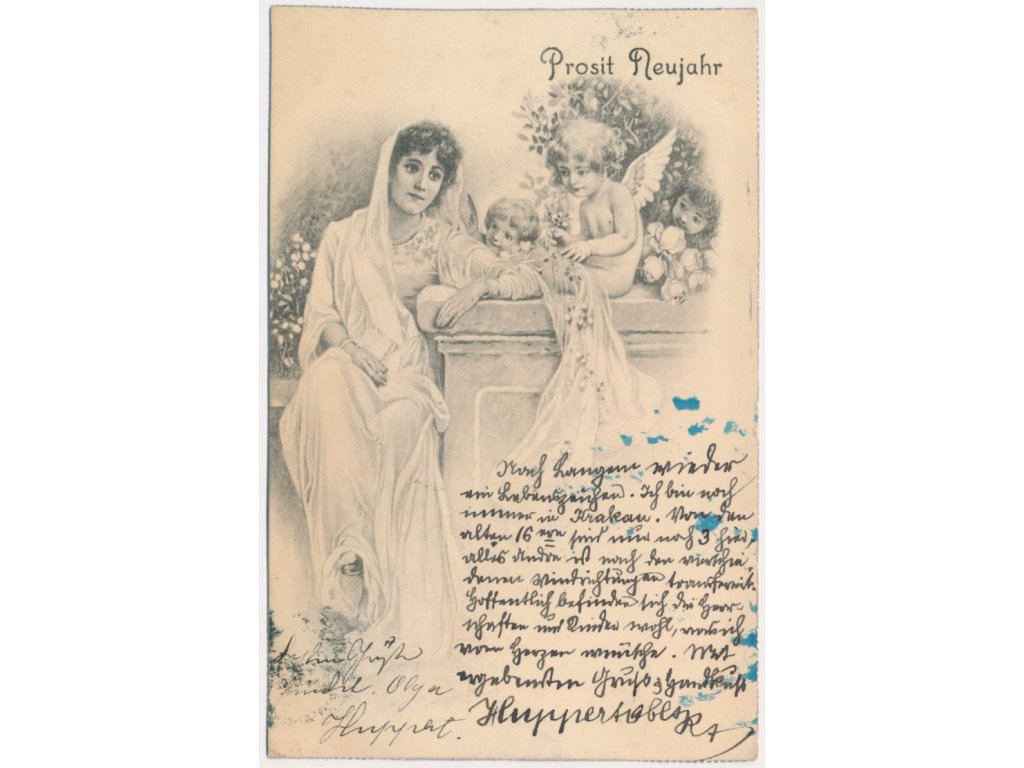 Prosit Neujahr
Nach Langem wieder
ein Lebenszeichen. Ich bin noch
immer in Krakau. Von den
alten 16 ern sind nur noch 3 hier,
alles Andre ist nach den verschie-
denen Windrichtungen transferirt.
Hoffentlich befinden sich die Herr-
schaften und Kinder wohl, was ich
vom Herzen wünsche. Mit
ergebensten Gruß & Handkuß
Grüße
Olga
Huppert.